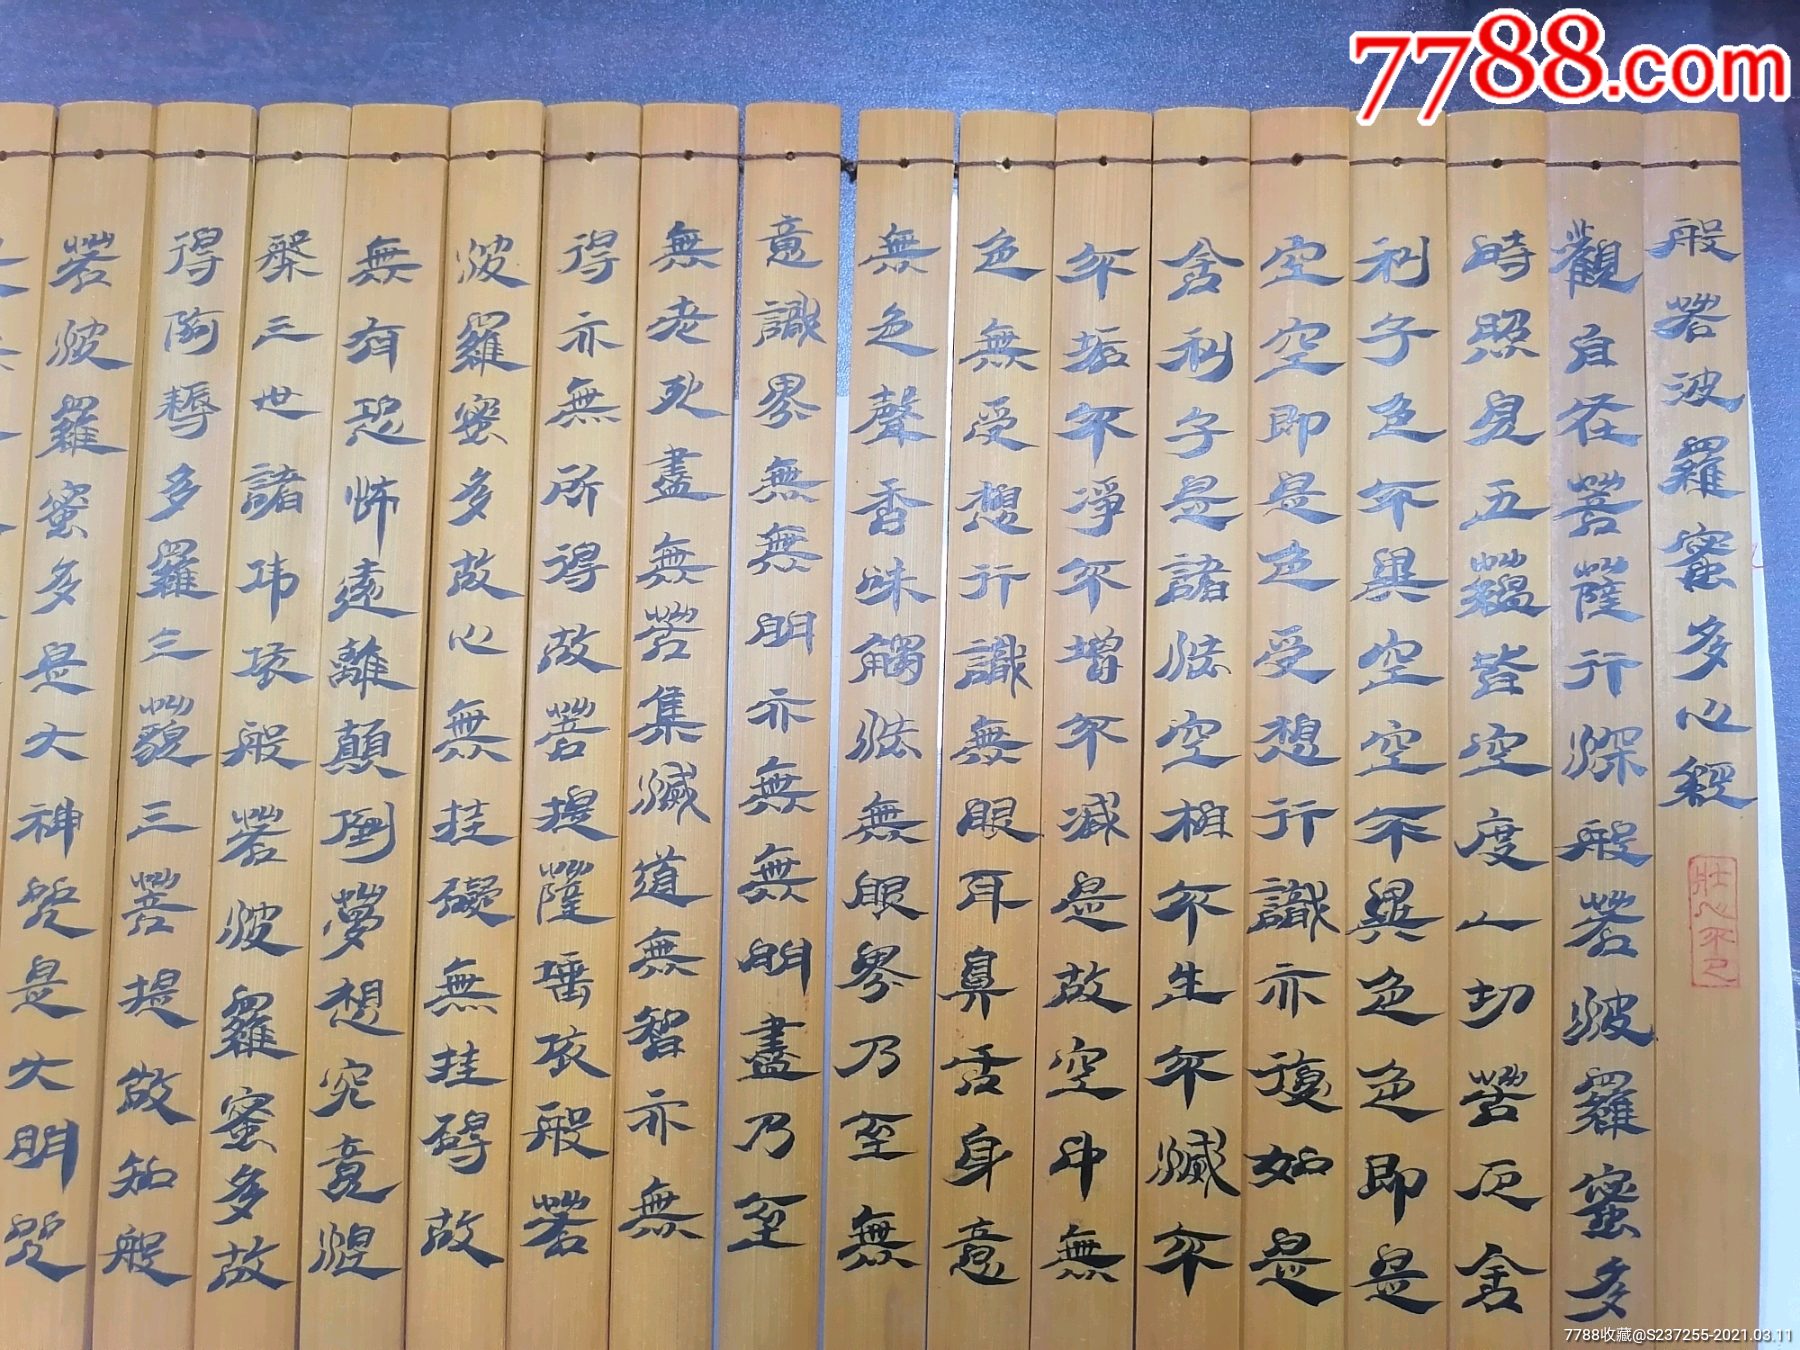 般若波羅蜜多心經
壯心不已
觀自在菩薩行深般若波羅蜜多
時照見五蘊皆空度一切苦厄舍
利子色不異空空不異色色即是
空空即是色受想行識亦復如是
舍利子是諸法空相不生不滅不
不垢不淨不增不減是故空中無
色無受想行識無眼耳鼻舌身意
無色聲香味觸法無眼界乃至無
意識界無無明亦無無明盡乃至
無老死盡無苦集滅道無智亦無
得亦無所得故菩提薩埵依般若
波羅蜜多故心無挂礙無挂碍故
無有恐怖遠離顛倒夢想究竟涅
槃三世諸佛依般若波羅蜜多故
得阿耨多羅三藐三菩提故知般
若波羅蜜多是大神咒是大明咒
7788.com
7788收藏@S237255-2021.03.11